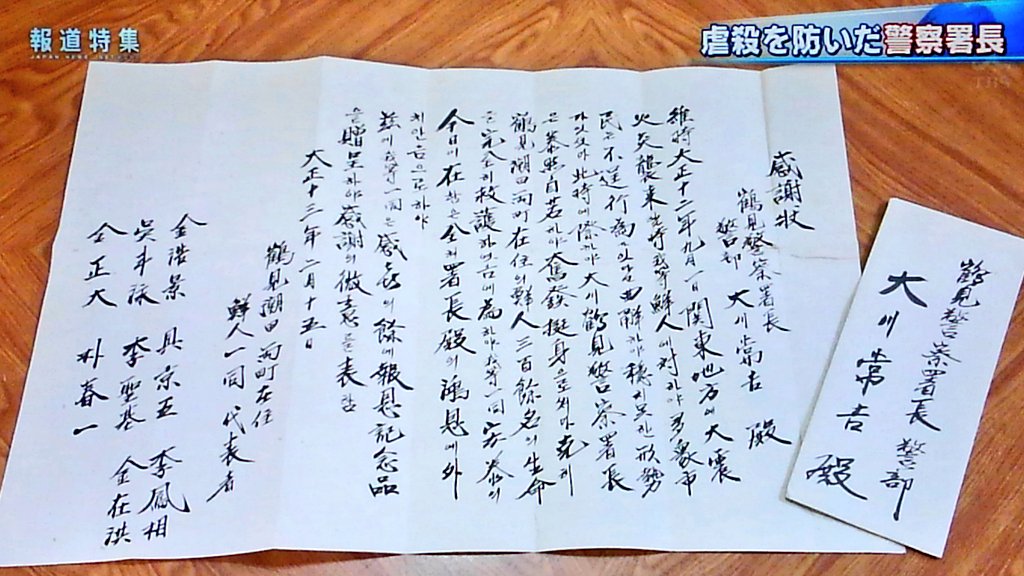 報道特集
JAPAN NEWS
虐殺を防いだ警察署長
感謝狀
鶴見警察署長
警部 大川常吉 殿
維時大正十二年九月一日関東地方에大震
火災襲來 時我等鮮人에対하야多衆市
民은不逞行為 曲解하야穩치못한形勢
此時에際하야大川鶴見警察署長
은泰然自若하야奮發挺身으로 克히
鶴見潮田両町在住의鮮人三百餘名의生命
을完全히救護 為하야我等一同安泰의
今日이在함은全혀署長殿의鴻恩에外
치안음으로하야
茲에我等一同은感喜의餘에報恩記念品
을贈呈하야感謝의微意를表함
大正十三年二月十五日
鶴見潮田両町在住
鮮人一同代表者
金浩景 具宗五 李鳳相
吳斗泳 李聖基 金在洪
全正大 朴春一
鶴見警察署長 警部
大川常吉 殿